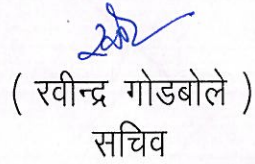 ( रवीन्द्र गोडबोले )
सचिव